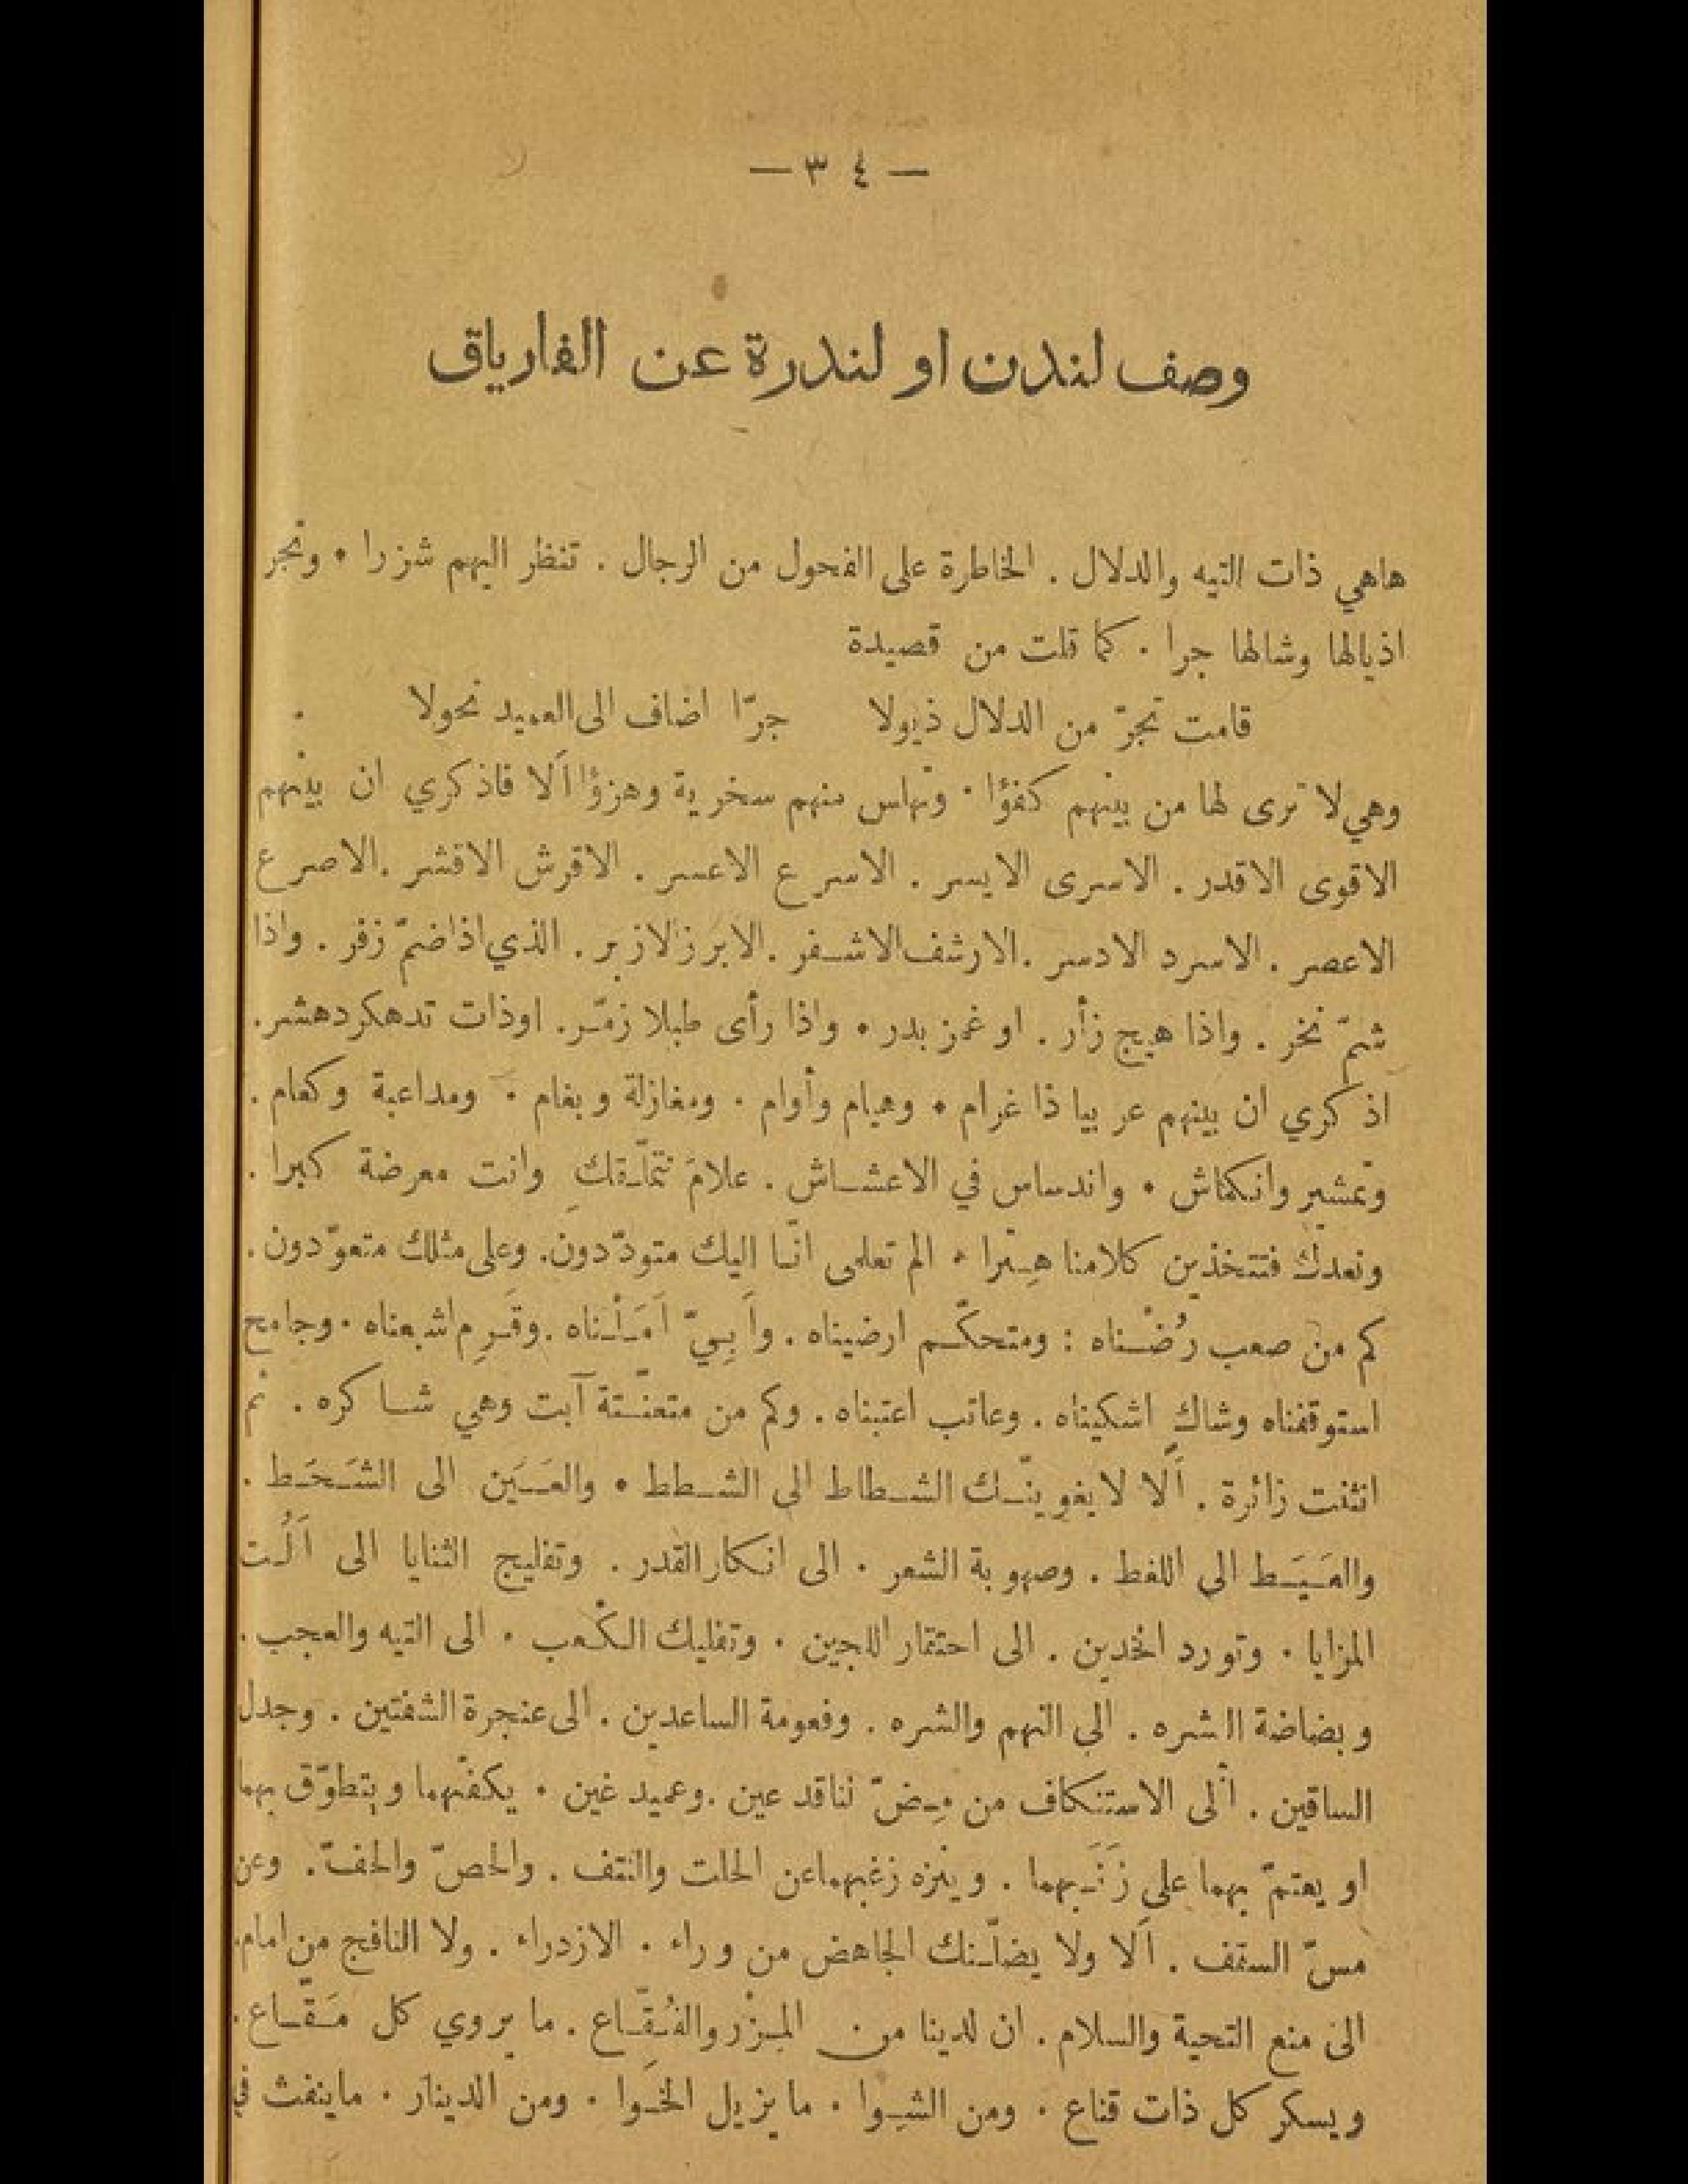 — ٣٤ —
وصف لندن او لندرة عن الفارياق
هاهي ذات التيه والدلال . الخاطرة على الفحول من الرجال . تنظر اليهم شزرا . وتجر
اذيالها وشالها جرا . كما قلت من قصيدة
قامت تجرّ من الدلال ذيولا جرّا اضاف الى العميد نحولا
وهي لا ترى لها من بينهم كفؤا . وتهاس منهم سخرية وهزؤا اَلا فاذكري ان بينهم
الاقوى الاقدر . الاسرى الايسر . الاسرع الاعسر . الاقرش الاقشر . الاصرع
الاعصر . الاسرد الادسر . الارشف الاشفر . الابرز الازبر . الذي اذا ضمّ زفر . واذا
شمّ نخر . واذا هيج زأر . او غمز بدر . واذا رأى طبلا زمّر . اوذات تدهكر دهشر .
اذكري ان بينهم عربيا ذا غرام . وهيام وأوام . ومغازلة وبغام . ومداعبة وكعام .
وتمشير وانكماش . واندساس في الاعشاش . علامَ نتملّقكِ وانت معرضة كبرا .
ونعدك فتتخذين كلامنا هِترا . الم تعلمى انّا اليك متودّدون . وعلى مثلك متعوّدون .
كم من صعب رُضْناه : ومتحكّم ارضيناه . واَبِيّ اَمَلْناه . وقَرِم اشبعناه . وجامح
استوقفناه وشاكٍ اشكيناه . وعاتب اعتبناه . وكم من متعنّتة آبت وهي شاكره . ثم
انثنت زائرة . اَلا لا يغوينّك الشطاط الى الشطط . والعَيَن الى الشَحَط .
والعَيَط الى اللغط . وصهوبة الشعر . الى انكار القدر . وتفليج الثنايا الى اَلْت
المزايا . وتورد الخدين . الى احتقار اللجين . وتفليك الكعب . الى التيه والعجب .
وبضاضة الشره . الى النهم والشره . وفعومة الساعدين . الى عنجرة الشفتين . وجدل
الساقين . الى الاستنكاف من مِضّ لناقد عين . وعميد غين . يكفتهما ويتطوّق بهما
او يعتمّ بهما على زَنَجهما . وينزه زغبهما عن الحلت والنتف . والحصّ والحفّ . وعن
مسّ السقف . اَلا ولا يضلّنك الجاهض من وراء . الازدراء . ولا النافج من امام .
الى منع التحية والسلام . ان لدينا من المِزْر والفُقّاع . ما يروي كل مَقّاع .
ويسكر كل ذات قناع . ومن الشِوا . ما يزيل الخَوا . ومن الدينار . ما ينفث في